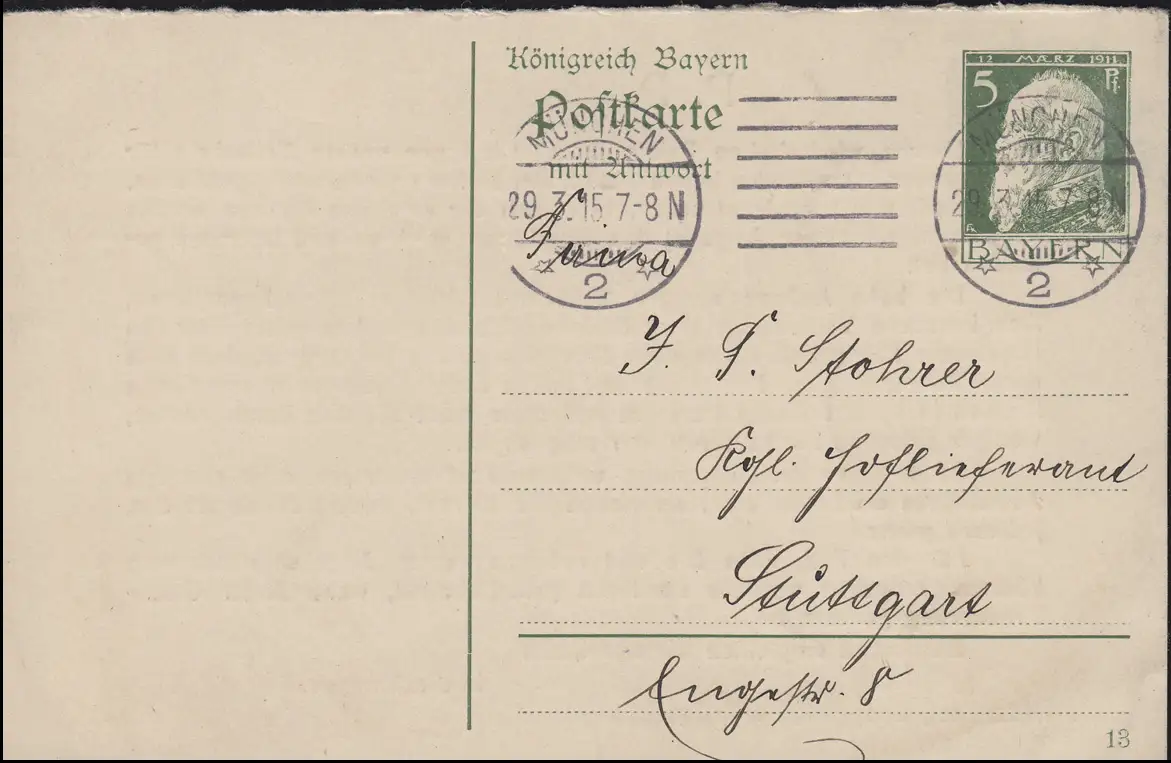 Königreich Bayern
Postkarte
mit Antwort
12 MÆRZ 1911
5 Pf.
BAYERN
MÜNCHEN
29.3.15 7-8 N
2
MÜNCHEN
29.3.15 7-8 N
2
Firma
J. G. Stohrer
Kgl. Hoflieferant
Stuttgart
Engestr. 8
13